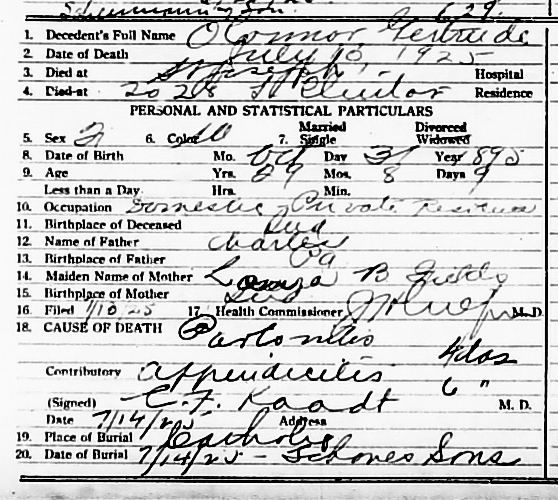 Schuman & Son. 629
1. Decedent's Full Name O'Connor Gertrude
2. Date of Death July 10, 1925
3. Died at St Joseph. Hospital
4. Died at 2028 St Residence
PERSONAL AND STATISTICAL PARTICULARS
5. Sex F 6. Color W 7. Married Single Divorced Widowed
8. Date of Birth Mo. Oct Day 31 Year 1895
9. Age Yrs. 29 Mos. 8 Days 9
Less than a Day Hrs. Min.
10. Occupation Domestic - Private Residence
11. Birthplace of Deceased Ind
12. Name of Father Charles
13. Birthplace of Father Pa
14. Maiden Name of Mother B Fields
15. Birthplace of Mother Ind
16. Filed 7/10/25 17. Health Commissioner M. D.
18. CAUSE OF DEATH Partonitis
4 das
Contributory Appendicitis
6 "
(Signed) C. F. Kaadt M. D.
Date 7/14/25 Address
19. Place of Burial Catholic
20. Date of Burial 7/14/25 - Schones Sons